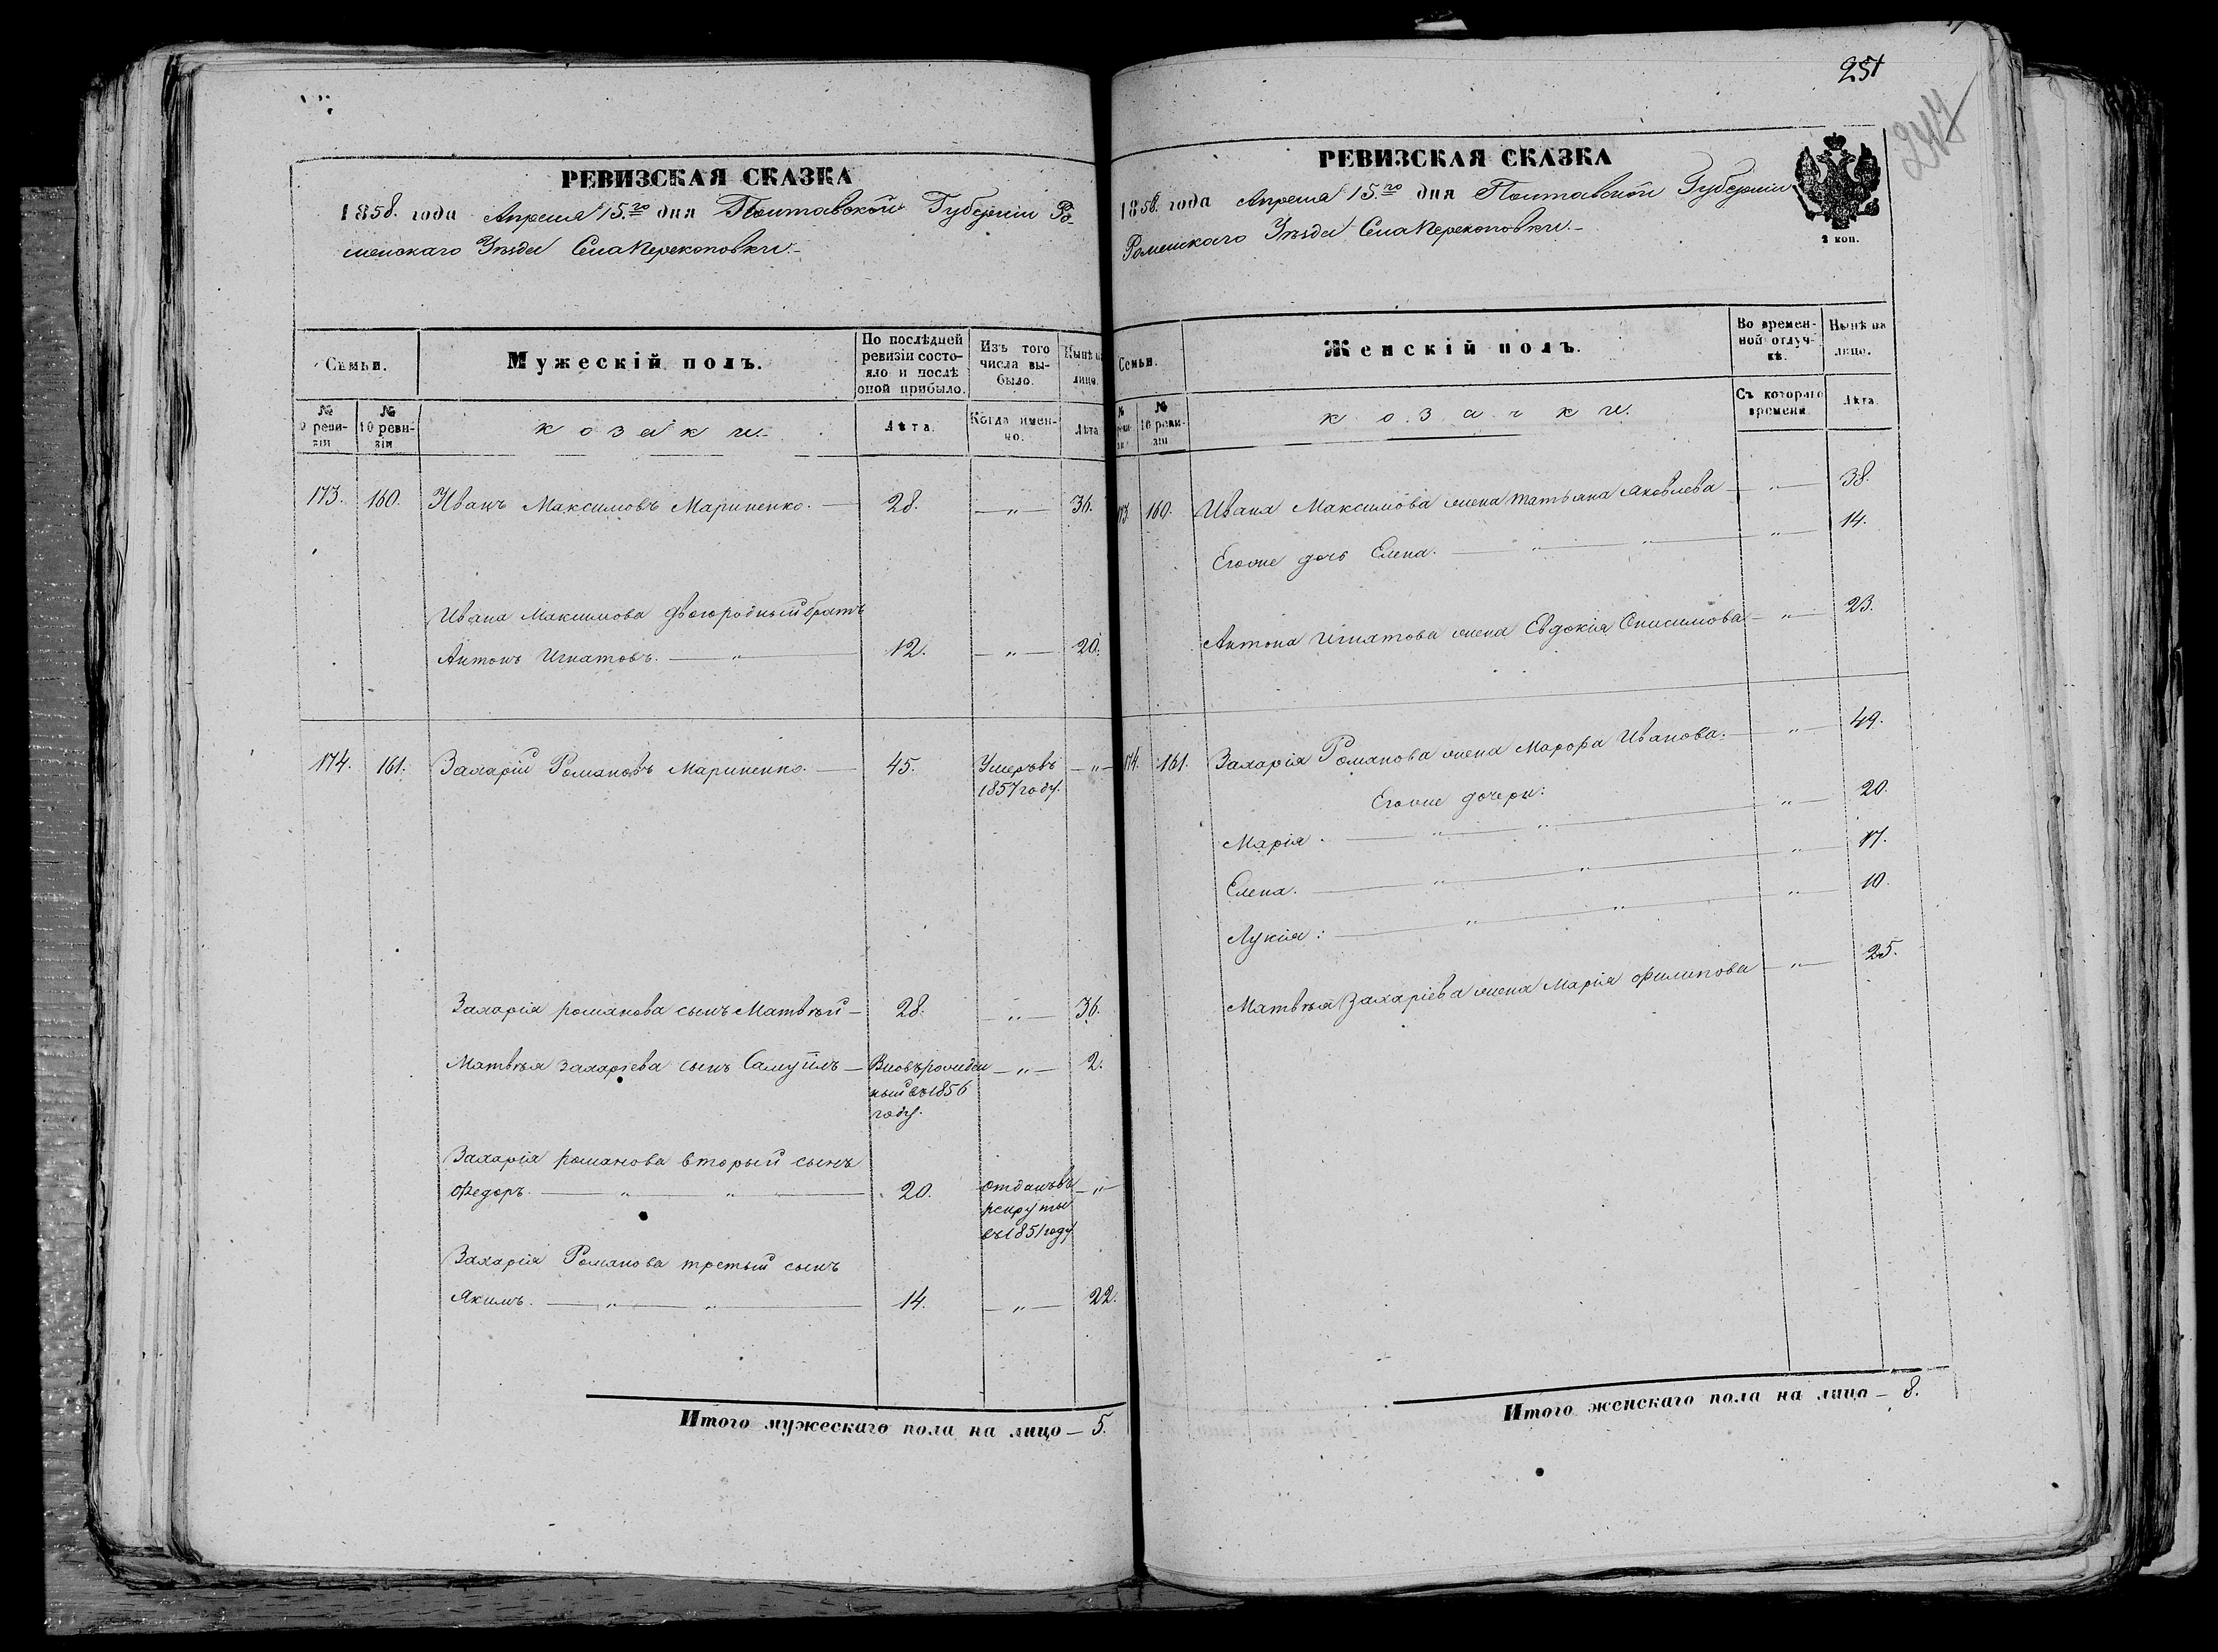 РЕВИЗСКАЯ СКАЗКА
1858. года Апреля 15.го дня Полтавской Губерніи Ро-
менскаго Уѣзда Села Перекоповки.-
Семьи.
Мужескій полъ.
По послѣдней ревизіи состояло и послѣ оной прибыло.
Изъ того числа выбыло.
Нынѣ на лицо.
№ 9 ревизіи
№ 10 ревизіи
козаки.
Лѣта.
Когда именно.
Лѣта
173. 160. Иванъ Максимовъ Мариненко. 28. — „ — 36.
Ивана Максимова двоюродный братъ
Антонъ Игнатовъ. — „ — 12. — „ — 20.
174. 161. Захарій Романовъ Мариненко. — 45. Умеръ въ — „ —
1857 году.
Захарія романова сынъ Матвѣй — 28. — „ — 36.
Матвѣя захаріева сынъ Самуйлъ — Вновь рожден — „ — 2.
ный въ 1856
году.
Захарія романова вторый сынъ
Федоръ. — „ — „ — 20. отданъ въ — „ —
рекруты
въ 1851 году
Захарія Романова третый сынъ
Якимъ. — „ — „ — 14. — „ — 22.
Итого мужескаго пола на лицо — 5.
251
247
РЕВИЗСКАЯ СКАЗКА
1858. года Апреля 15.го дня Полтавской Губерніи
Роменскаго Уѣзда Села Перекоповки.-
2 коп.
Семьи.
Женскій полъ.
Во временной отлучкѣ.
Нынѣ на лицо.
№ ревизіи
№ 10 ревизіи
козачки.
Съ котораго времени.
Лѣта.
173. 160. Ивана Максимова жена татьяна яковлева — „ — 38.
Егоже дочь Елена. — „ — „ — „ — 14.
Антона Игнатова жена Евдокія Онисимова — „ — 23.
174. 161. Захарія Романова жена Марфа Иванова. — „ — 49.
Егоже дочери:
Марія. — „ — „ — „ — 20.
Елена. — „ — „ — „ — 17.
Лукія: — „ — „ — „ — 10.
Матвѣя Захаріева жена Марія Филипова — „ — 25.
Итого женскаго пола на лицо — 8.